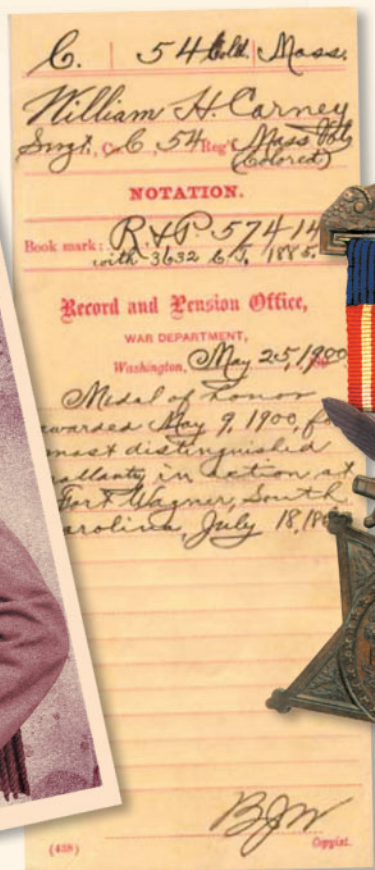 C. | 54 Cold. Mass.
William H. Carney
Sergt., Co. C, 54 Reg't Mass Vols
(Colored)
NOTATION.
Book mark: R.&P. 574-14
with 3632 C.J. 1885.
Record and Pension Office,
WAR DEPARTMENT,
Washington, May 25, 1900
Medal of honor
awarded May 9, 1900, f
most distinguished
allantry in action at
Fort Wagner, South
arolina, July 18, 18
(438)
BJW
Copyist.